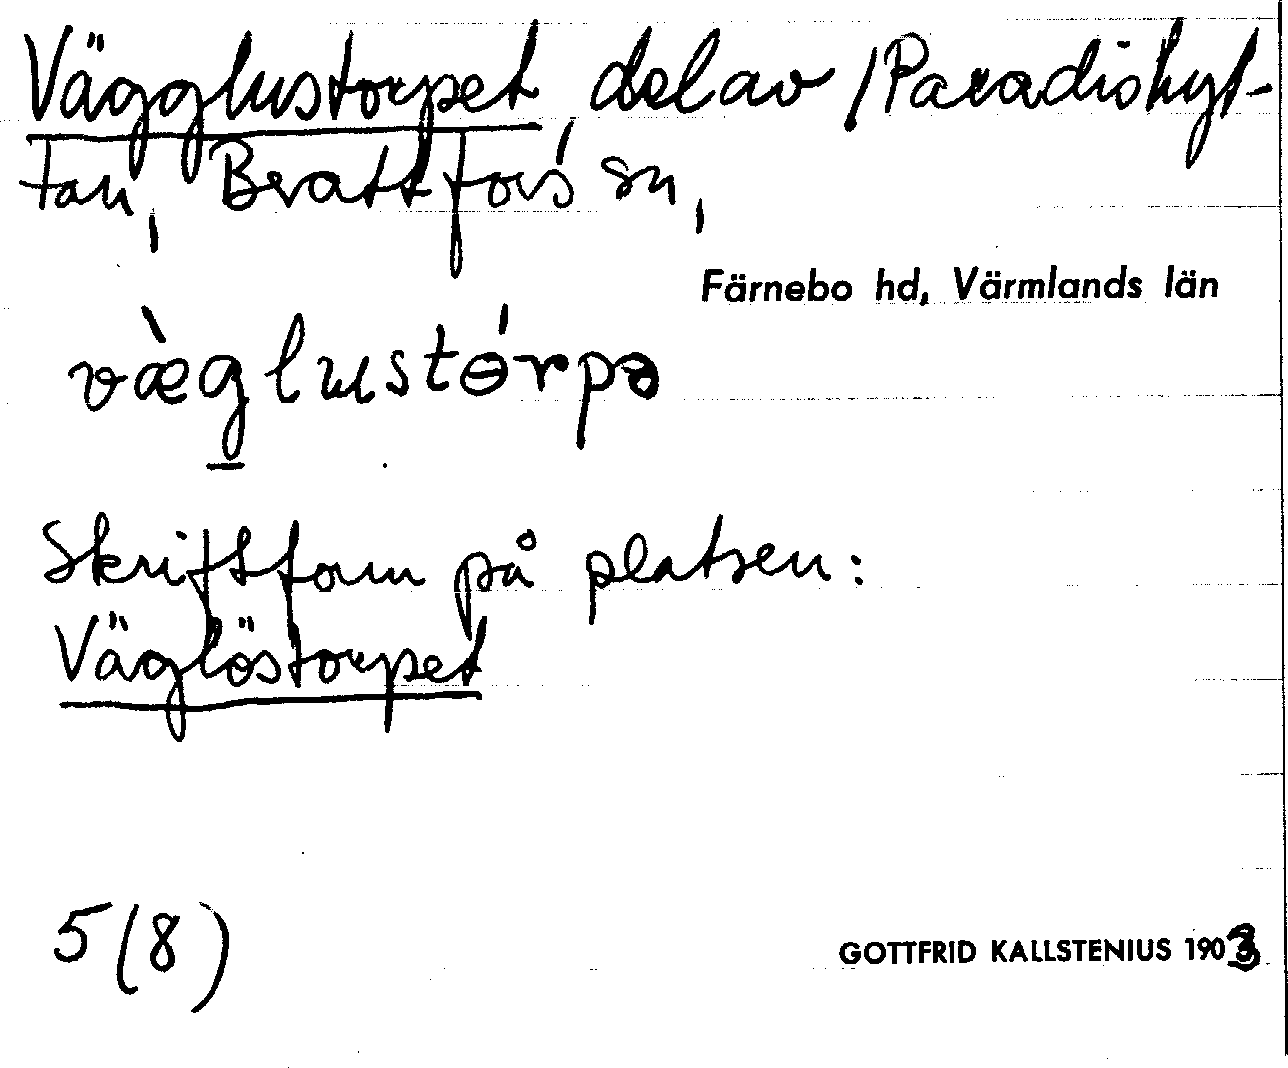 Vägglustorpet, del av /Paradishyt-
tan, Brattfors sn,
Färnebo hd, Värmlands län
væ̀glustɵ́rpə
Skriftform på platsen:
Väglöstorpet
5 (8)
GOTTFRID KALLSTENIUS 1903